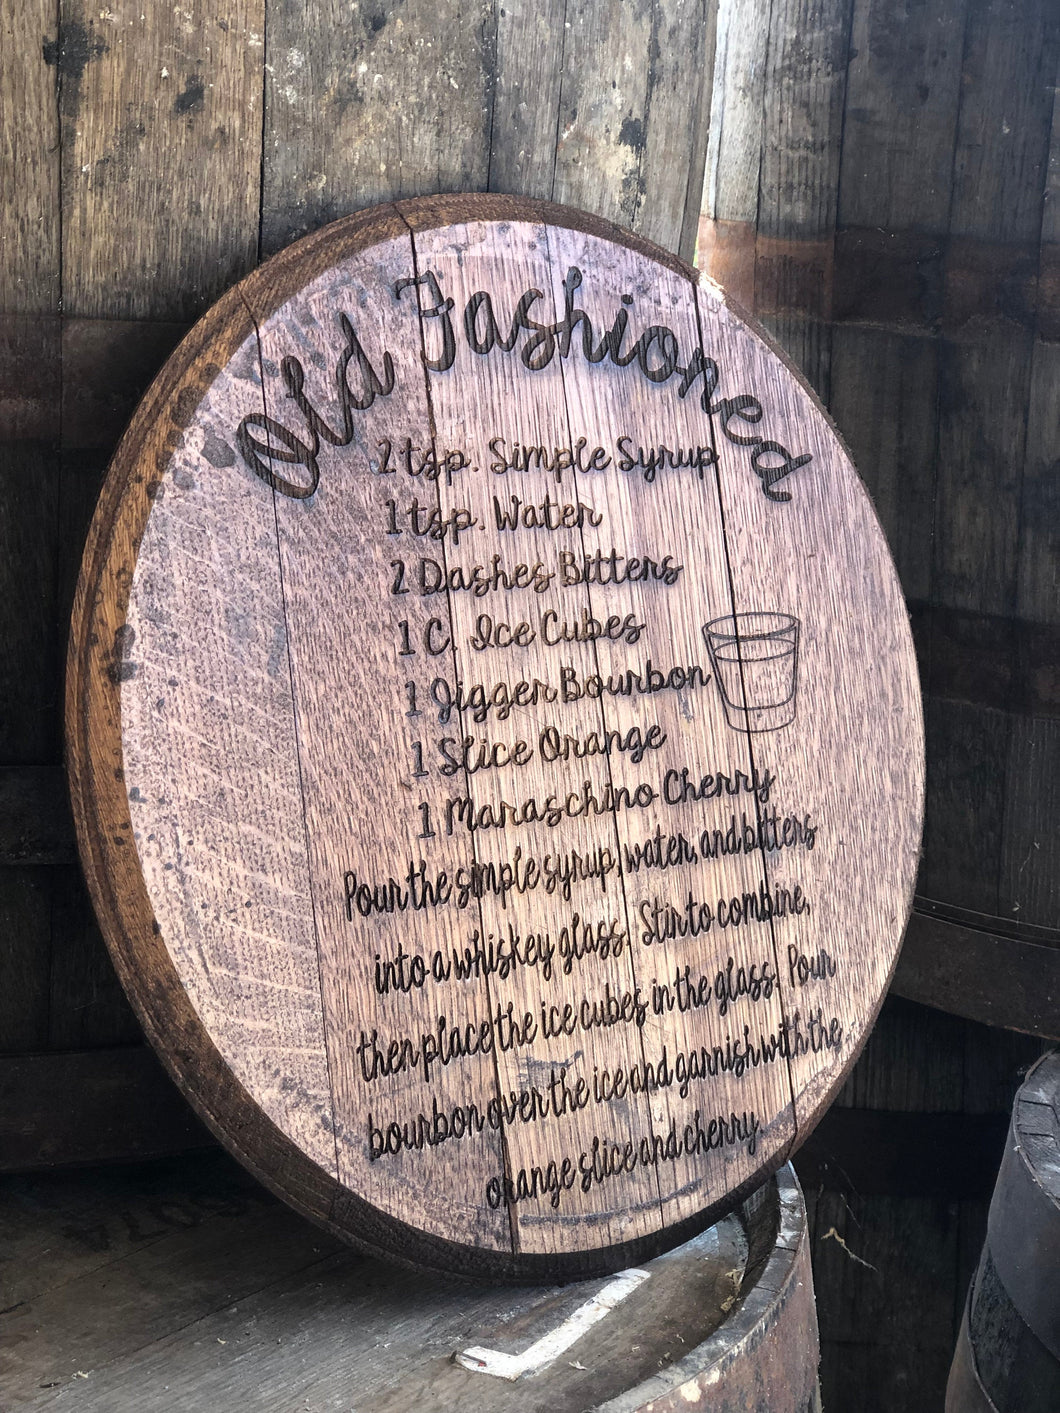 Old Fashioned
2 tsp. Simple Syrup
1 tsp. Water
2 Dashes Bitters
1 C. Ice Cubes
1 Jigger Bourbon
1 Slice Orange
1 Maraschino Cherry
Pour the simple syrup, water, and bitters
into a whiskey glass. Stir to combine,
then place the ice cubes in the glass. Pour
bourbon over the ice and garnish with the
orange slice and cherry.